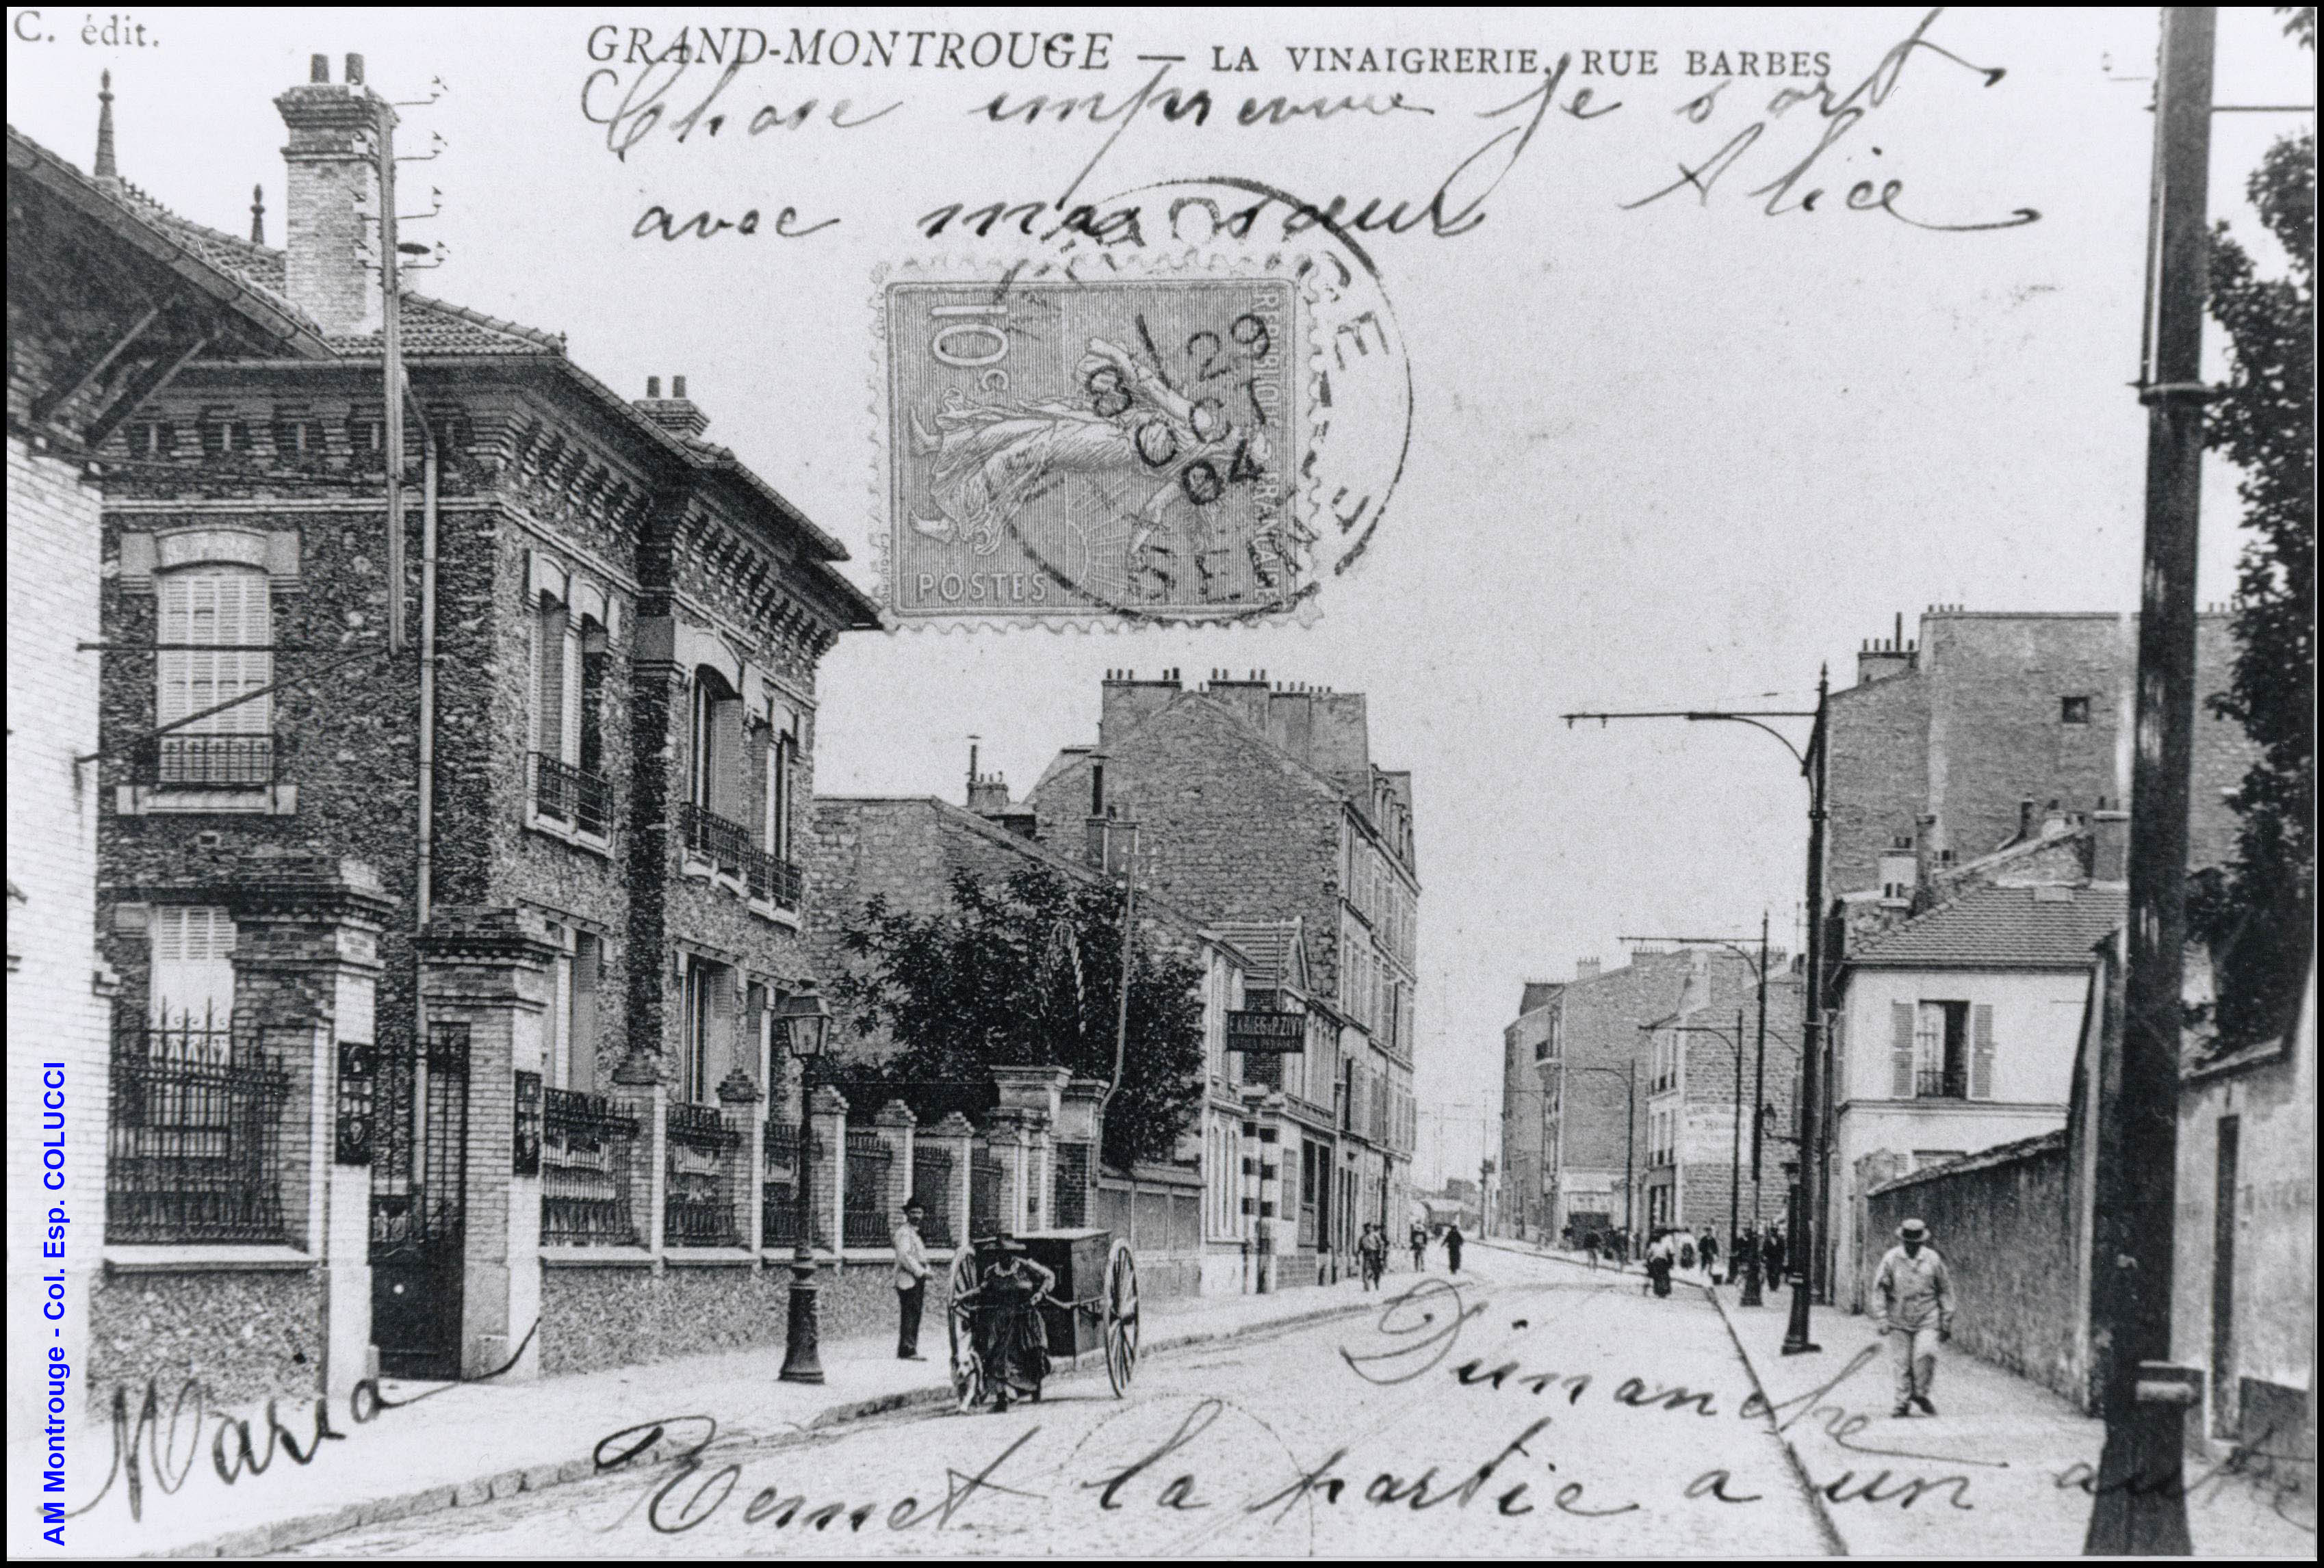 C. édit.
GRAND-MONTROUGE — LA VINAIGRERIE, RUE BARBES
Chose imprevue je sort
avec ma sœur Alice
10c
REPUBLIQUE FRANÇAISE
POSTES
8
29
OCT
04
SEINE
Dimanche
Remet la partie a un autre
Maria
AM Montrouge - Col. Esp. COLUCCI